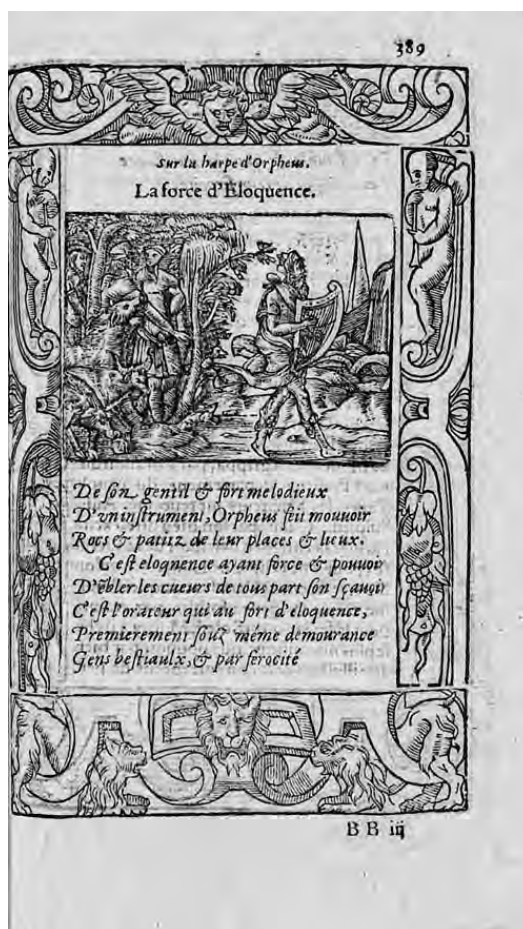 389
Sur la harpe d'Orpheus.
La force d'Eloquence.
De son gentil & fort melodieux
D'vn instrument, Orpheus feit mouuoir
Rocs & patitz de leur places & lieux.
C'est eloquence ayant force & pouuoir
D'ẽbler les cueurs de tous part son sçauoir
C'est l'orateur qui au fort d'eloquence,
Premierement souz méme demourance
Gens bestiaulx, & par ferocité
B B iij